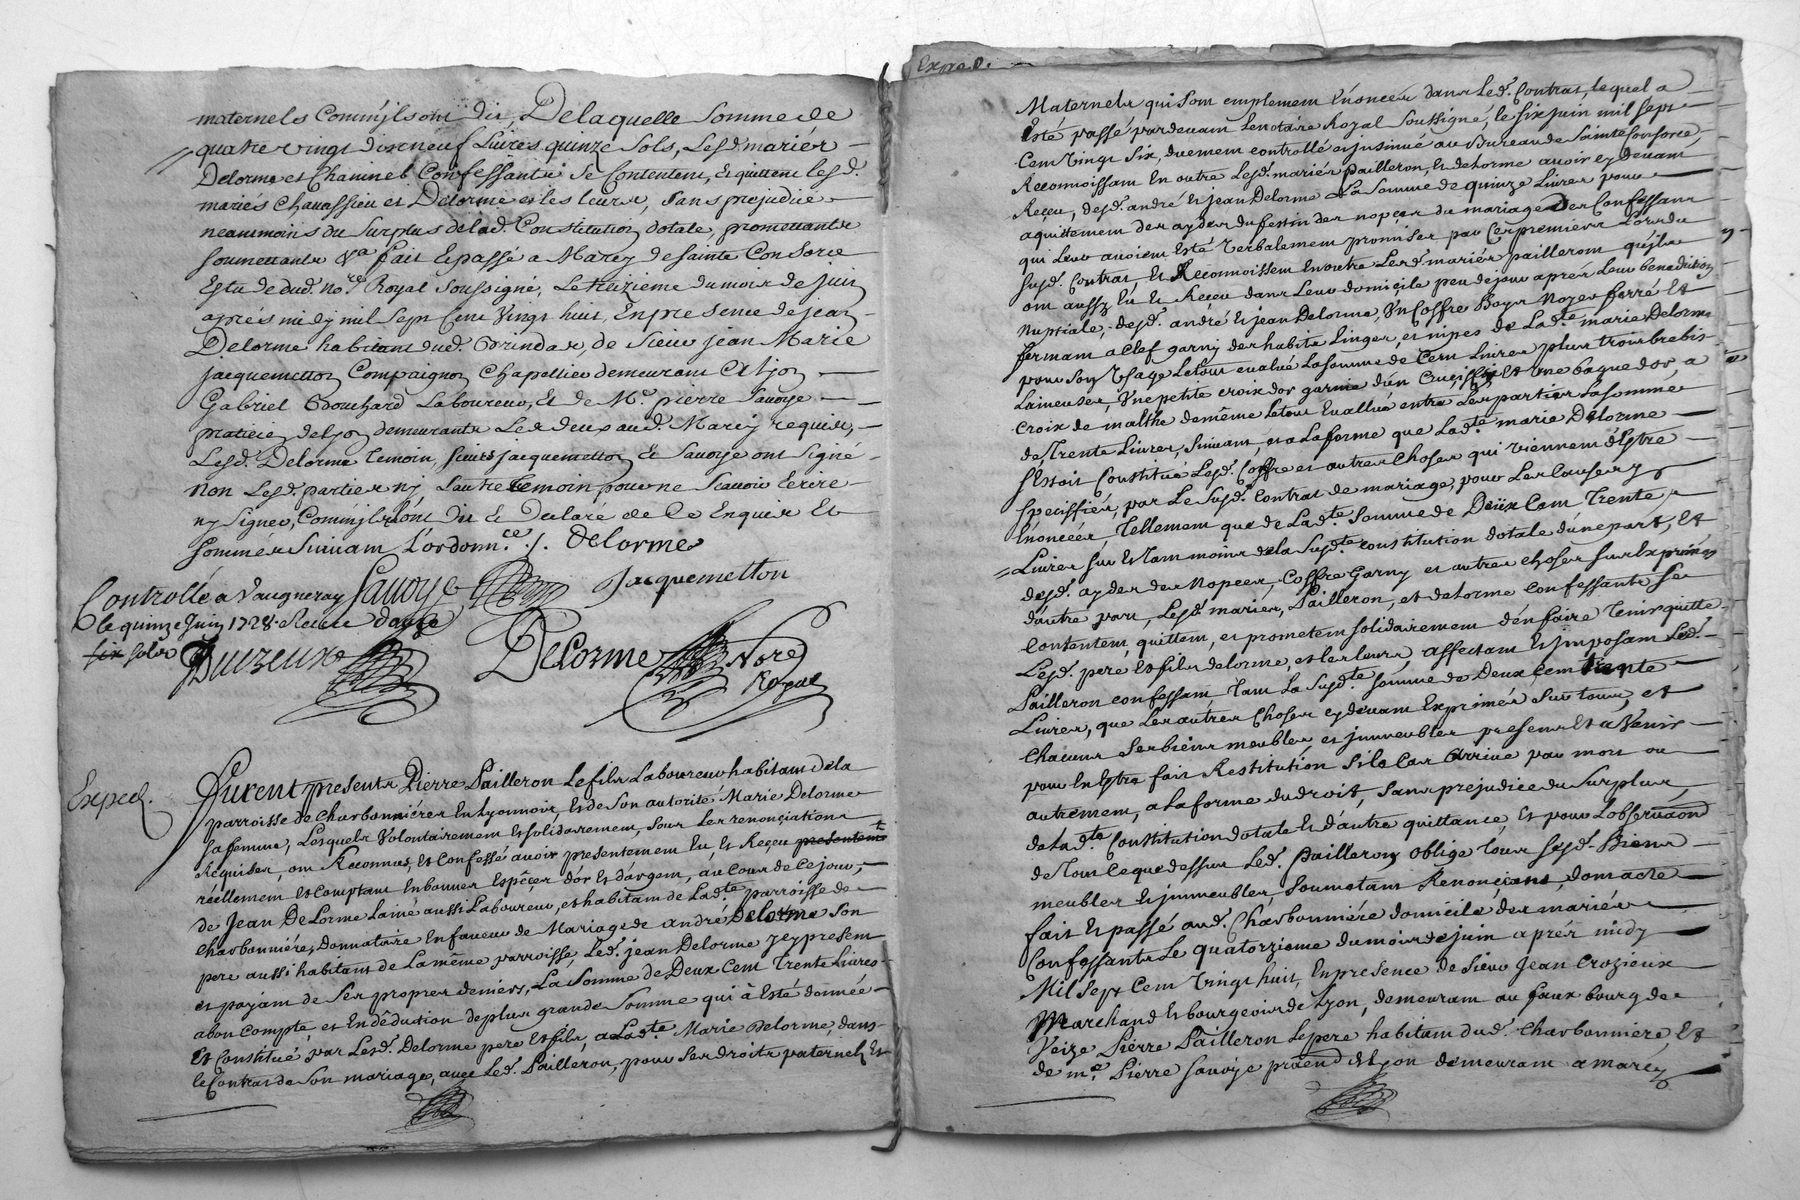 maternels Comm'jls ont dit, De laquelle Somme de
quatre vingt dix neuf Livres quinze Sols, Lesd. mariés
Delorme et Chaninel Confessants Se Contentent, et quittent lesd.
mariés Chavassieu et Delorme et les leurs, Sans prejudice
neantmoins du Surplus de lad. Constitution dotale, promettants
soumettants &a fait et passé a Marcy de Sainte Consorce
Estude dud. no.re Royal Soussigné, Le treizieme du mois de Juin
apres midy mil Sept Cent Vingt huit, En presence de jean
Delorme habitant dud. Grindas, de Sieur jean Marie
jacquemetton Compaignon Chapellier demeurant a Lyon
Gabriel Bouchard Laboureur, Et de Me. pierre Savoye
praticien de Lyon demeurants Les deux aud. Marcy requis,
Lesd. Delorme temoin, sieurs jacquemetton & Savoye ont Signé
non Lesd. parties nj L'autre temoin pour ne Scavoir Ecrire
ny Signer, Comm'jls ont dit & Declaré de Ce Enquis Et
Sommés Suivant L'ordonn.ce /. Delorme
Savoye Jacquemetton
Controllé a Vaugneray
le quinze Juin 1728. Receu douze
six sols
Delorme Nore
Royal
Exped.
Furent presents Pierre Pailleron Le fils Laboureur habitant de la
parroisse de Charbonnieres En Lyonnois, Et de Son autorité Marie Delorme
sa femme, Lesquels Volontairement Et solidairement, Sous Les renonciations
Requises, ont Reconnus, Et Confessé avoir presentement Eu, Et Reçu presentemt
réellement Et Comptant En bonnes Espéces d'or Et d'argent, au Cour de Ce jour,
de Jean DeLorme Lainé aussi Laboureur, et habitant de Lad.te parroisse de
Charbonniéres, Donnataire En faveur de Mariage de andré Delorme Son
pere aussi habitant de La même parroisse, Led. jean Delorme jcy present
et payant de Ses propres deniers, La Somme de Deux Cent Trente Livres
a bon Compte, et En déduction de plus grande Somme qui à Esté donnée
Et Constitué par Lesd. Delorme pere Et fils, a Lad.te Marie Delorme, dans
le Contrat de Son mariage, avec Led. Pailleron, pour Ses droits paternels Et
Exped.
Maternels qui Sont emplement Enoncés dans Led. Contrat, lequel a
Esté passé pardevant Le notaire Royal Soussigné, le six juin mil sept
Cent Vingt Six, duement controllé et jnsinué au Bureau de Sainte Consorce,
Reconnoissant En outre Lesd. mariés Pailleron, Et deLorme avoir cy devant
Reçeu, desd. andré Et jean Delorme La Somme de quinze Livres pour
aquittement des aydes du festin des nopces du mariage des Confessans
qui Leur avoient Esté Verbalement promises par Ces premiers Lors du
susd. Contrat, Et Reconnoissent En outre Lesd. mariés Pailleront qu'jls
ont aussy Eu Et Reçeu dans Leur domicile peu de jour aprés Leur benediction
nuptiale, desd. andré Et jean Delorme, Un Coffre Boys Noyer ferré Et
fermant a Clef garny des habits Linges, et nipes de La d.te marie Delorme
pour Son Usage Letout evalué La Somme de Cent Livres plus trois brebis
Laineuses, Une petite croix d'or garnie d'un Crucifix Et Une bague d'or, a
Croix de malthe de même Letout Evallué entre Les parties La Somme
de Trente Livres, Suivant, et a La forme que Lad.te marie Delorme
S'Estoit Constitué Lesd. Coffre et autres Choses qui viennent d'Estre
speciffiés, par Le Susd. Contrat de mariage, pour Les Causes y
Enoncées, Tellement que de Lad.te Somme de Deux Cent Trente
Livres Sur Et Tant moins de la Susd.te Constitution dotale d'une part, Et
desd. aydes des Nopces, Coffre Garny et autres choses Sus Exprimées
d'autre part, Lesd. mariés, Pailleron, et delorme Confessants Se
Contentent, quittent, et prometent solidairement d'en faire Tenir quitte
Lesd. pere Et fils delorme, et les leurs, affectant Et Jmposant Led.
Pailleron confessant, Tant La Susd.te Somme de Deux Cent trente
Livres, que Les autres Choses cy devant Exprimés Sur tous, et
Chacuns Ses biens meubles et jmmeubles presens Et à Venir
pour En Estre fait Restitution Si le Cas Arrive par mort ou
autrement, a La forme du droit, Sans prejudice du Surplus
de Lad.te Constitution dotale Et d'autre quittance, Et pour L'observaon
de Tout Ce que dessus Led. Pailleron oblige tous Sesd. Biens
meubles Et jmmeubles, Soumetant Renonçiant, dont acte
fait Et passé aud. Charbonniére domicile des mariés
Confessants Le quatorzieme du mois de juin aprés midy
Mil Sept Cent Vingt huit, En presence de Sieur Jean Crozieux
Marchand Et bourgeois de Lyon, demeurant au faux bourg de
Veize Pierre Pailleron Le pere habitant dud. Charbonniére, Et
de me. Pierre Savoye praticn de Lyon demeurant a Marcy